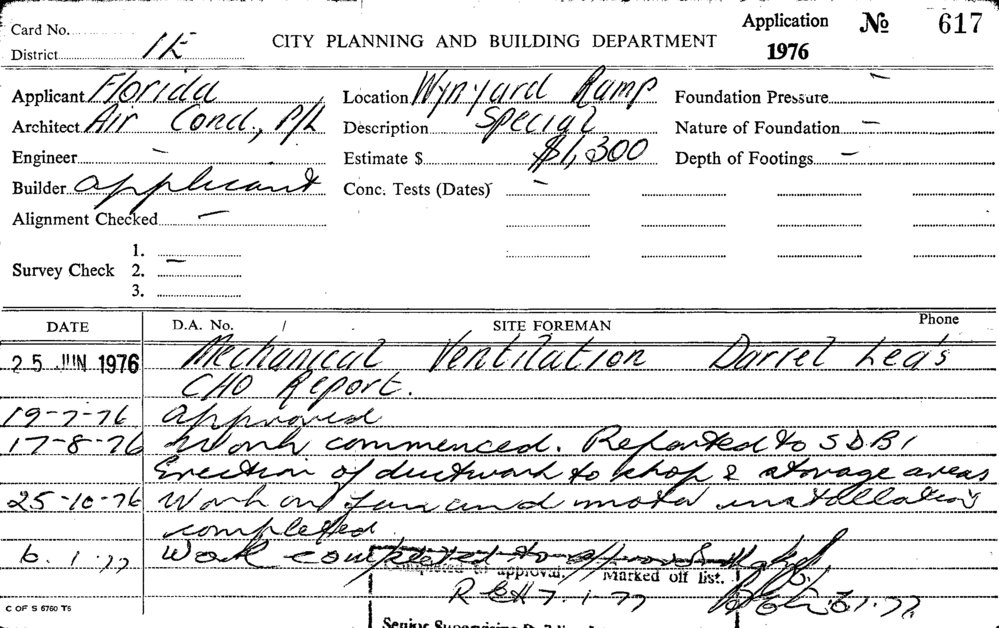 Card No.
District 1E
CITY PLANNING AND BUILDING DEPARTMENT
Application No 617
1976
Applicant Florida Location Wynyard Ramp Foundation Pressure –
Architect Air Cond., P/L Description Special Nature of Foundation –
Engineer – Estimate $ $1,300 Depth of Footings –
Builder applicant Conc. Tests (Dates) –
Alignment Checked –
1.
Survey Check 2. –
3.
DATE D.A. No. / SITE FOREMAN Phone
25 JUN 1976 Mechanical Ventilation Darrel Lea's
CHO Report.
19-7-76 approved
17-8-76 Work commenced. Reported to SDBI
Erection of ductwork to shop & storage areas
25-10-76 Work on fan and motor installations
completed
6.1.77 Work completed to approval
Completed to approval. Marked off list.
7.1.77 6.1.77
C OF S 6760 T6
Senior Supervising